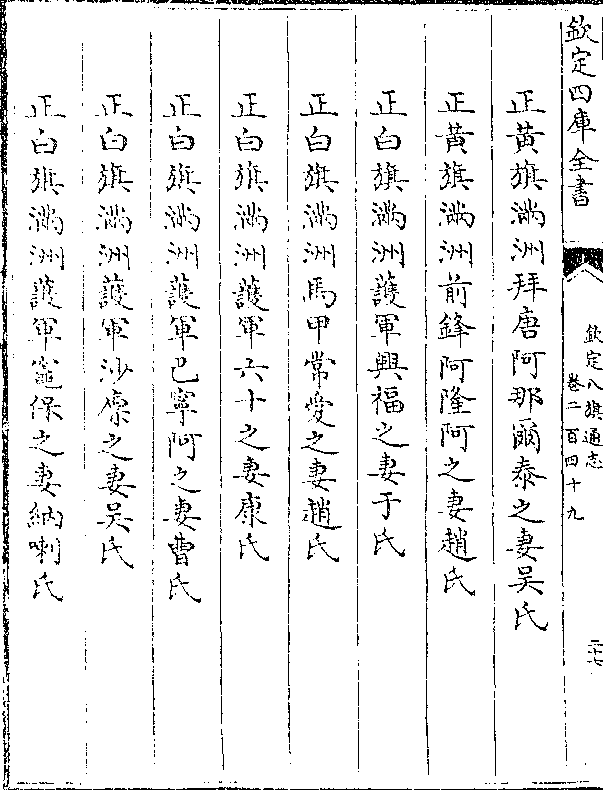 欽定四庫全書
欽定八旗通志
卷二百四十九
二十七
正黃旗滿洲拜唐阿那爾泰之妻吳氏
正黃旗滿洲前鋒阿隆阿之妻趙氏
正白旗滿洲護軍興福之妻于氏
正白旗滿洲馬甲常愛之妻趙氏
正白旗滿洲護軍六十之妻康氏
正白旗滿洲護軍巴寧阿之妻曹氏
正白旗滿洲護軍沙凜之妻吳氏
正白旗滿洲護軍竈保之妻納喇氏